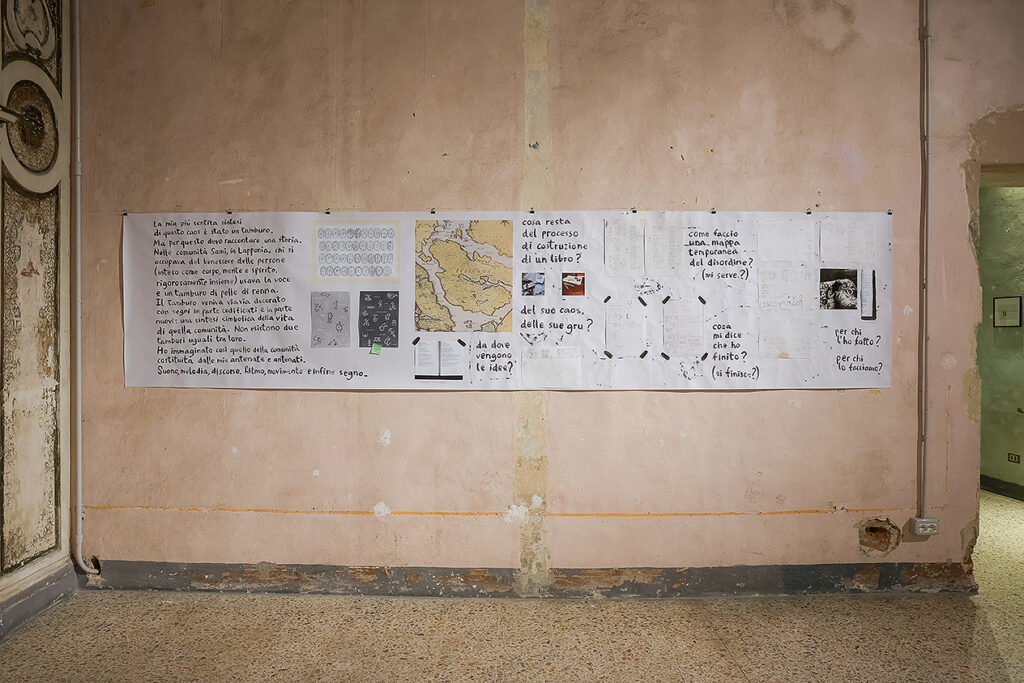 La mia più sentita sintesi
di questo caos è stato un tamburo.
Ma per questo devo raccontare una storia.
Nelle comunità Sami, in Lapponia, chi si
occupava del benessere delle persone
(inteso come corpo, mente e spirito,
rigorosamente insieme) usava la voce
e un tamburo di pelle di renna.
Il tamburo veniva via via decorato
con segni in parte codificati e in parte
nuovi: una sintesi simbolica della vita
di quella comunità. Non esistono due
tamburi uguali tra loro.
Ho immaginato così quello della comunità
costituita dalle mie antenate e antenati.
Suono, melodia, discorso. Ritmo, movimento e infine segno.
da dove
vengono
le idee?
cosa resta
del processo
di costruzione
di un libro?
del suo caos,
delle sue gru?
come faccio
una mappa
temporanea
del disordine?
(mi serve?)
cosa
mi dice
che ho
finito?
(si finisce?)
per chi
l'ho fatto?
per chi
lo facciamo?